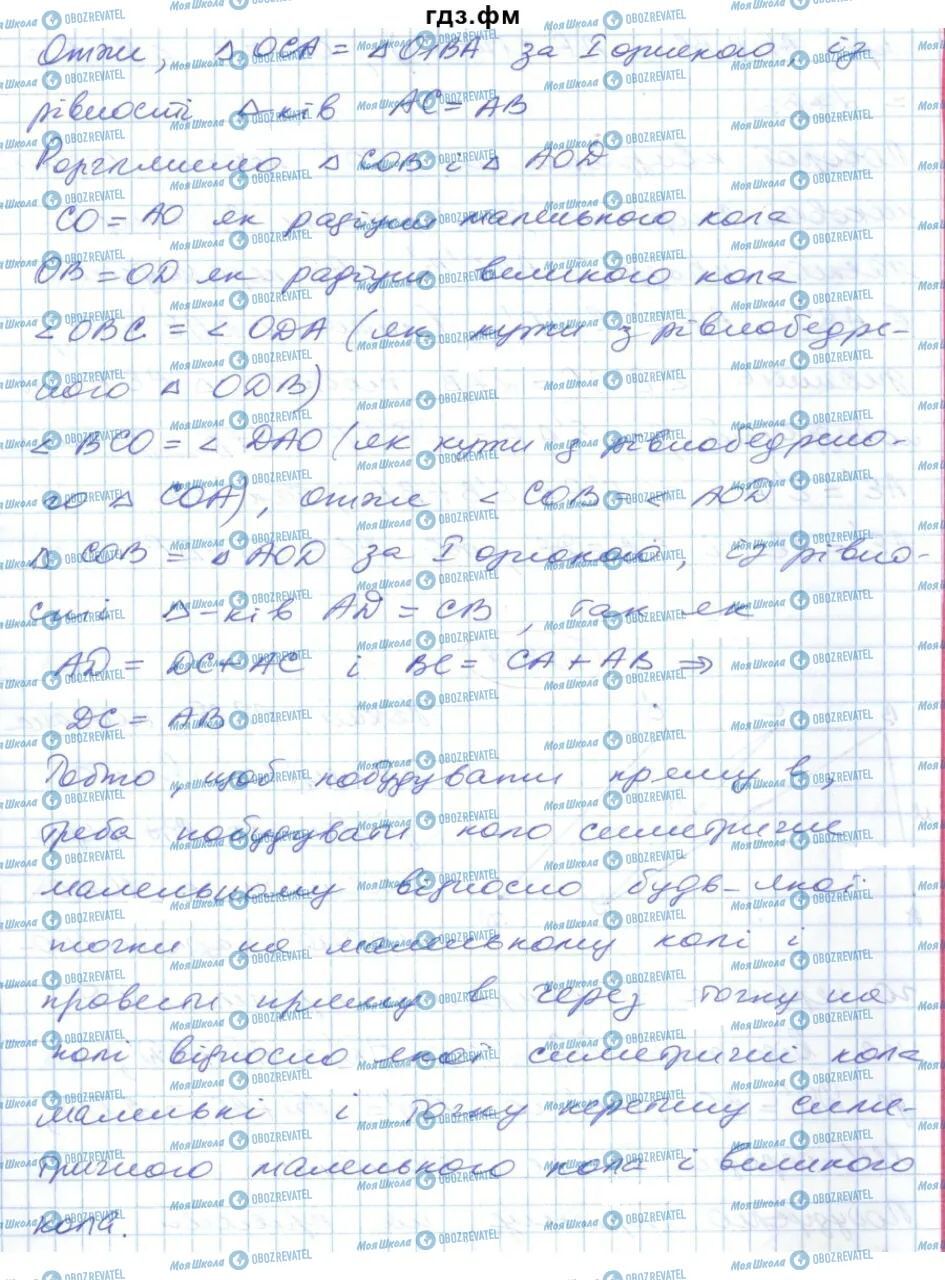 гдз.фм
Отже, △ OCA = △ O₁BA за I ознакою, із
рівності △-ків AC = AB
Розглянемо △ COB і △ AOD
CO = AO як радіуси маленького кола
OB = OD як радіуси великого кола
< OBC = < ODA (як кути з рівнобедре-
ного △ ODB)
< BCO = < DAO (як кути з рівнобедрено-
го △ COA), отже < COB = < AOD
△ COB = △ AOD за I ознакою, із рівно-
сті △-ків AD = CB, так як
AD = DC + AC і BC = CA + AB ⇒
DC = AB
Тобто щоб побудувати пряму b,
треба побудувати коло симетричне
маленькому відносно будь-якої
точки на маленькому колі і
провести пряму b через точку на
колі відносно якої симетричні кола
маленькі і точку перетину симе-
тричного маленького кола і великого
кола.